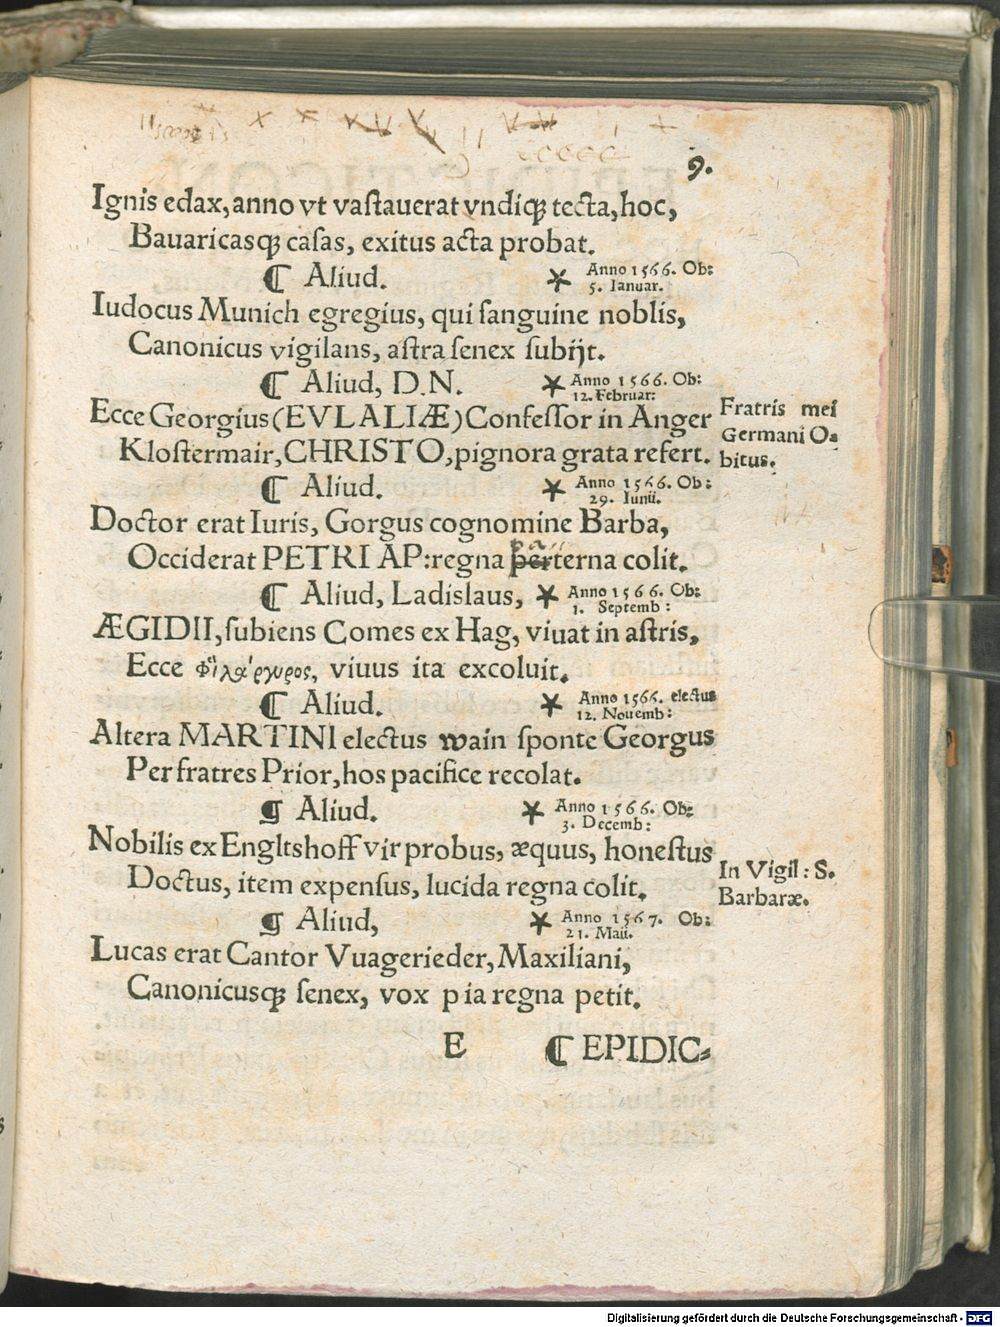 9.
Ignis edax, anno vt vastauerat vndiqꝫ tecta, hoc,
Bauaricasqꝫ casas, exitus acta probat.
¶ Aliud. * Anno 1566. Ob:
5. Ianuar.
Iudocus Munich egregius, qui sanguine noblis,
Canonicus vigilans, astra senex subijt.
¶ Aliud, D.N. * Anno 1566. Ob:
12. Februar:
Ecce Georgius (EVLALIÆ) Confessor in Anger
Klostermair, CHRISTO, pignora grata refert.
Fratris mei
Germani O-
bitus.
¶ Aliud. * Anno 1566. Ob:
29. Iunii.
Doctor erat Iuris, Gorgus cognomine Barba,
Occiderat PETRI AP: regna perterna colit.
¶ Aliud, Ladislaus, * Anno 1566. Ob:
1. Septemb:
ÆGIDII, subiens Comes ex Hag, viuat in astris,
Ecce Φιλάργυρος, viuus ita excoluit.
¶ Aliud. * Anno 1566. electus
12. Nouemb:
Altera MARTINI electus wain sponte Georgus
Per fratres Prior, hos pacifice recolat.
¶ Aliud. * Anno 1566. Ob:
3. Decemb:
Nobilis ex Engltshoff vir probus, æquus, honestus
Doctus, item expensus, lucida regna colit.
In Vigil: S.
Barbaræ.
¶ Aliud, * Anno 1567. Ob:
21. Maii.
Lucas erat Cantor Vuagerieder, Maxiliani,
Canonicusqꝫ senex, vox pia regna petit.
E ¶ EPIDIC-
Digitalisierung gefördert durch die Deutsche Forschungsgemeinschaft - DFG